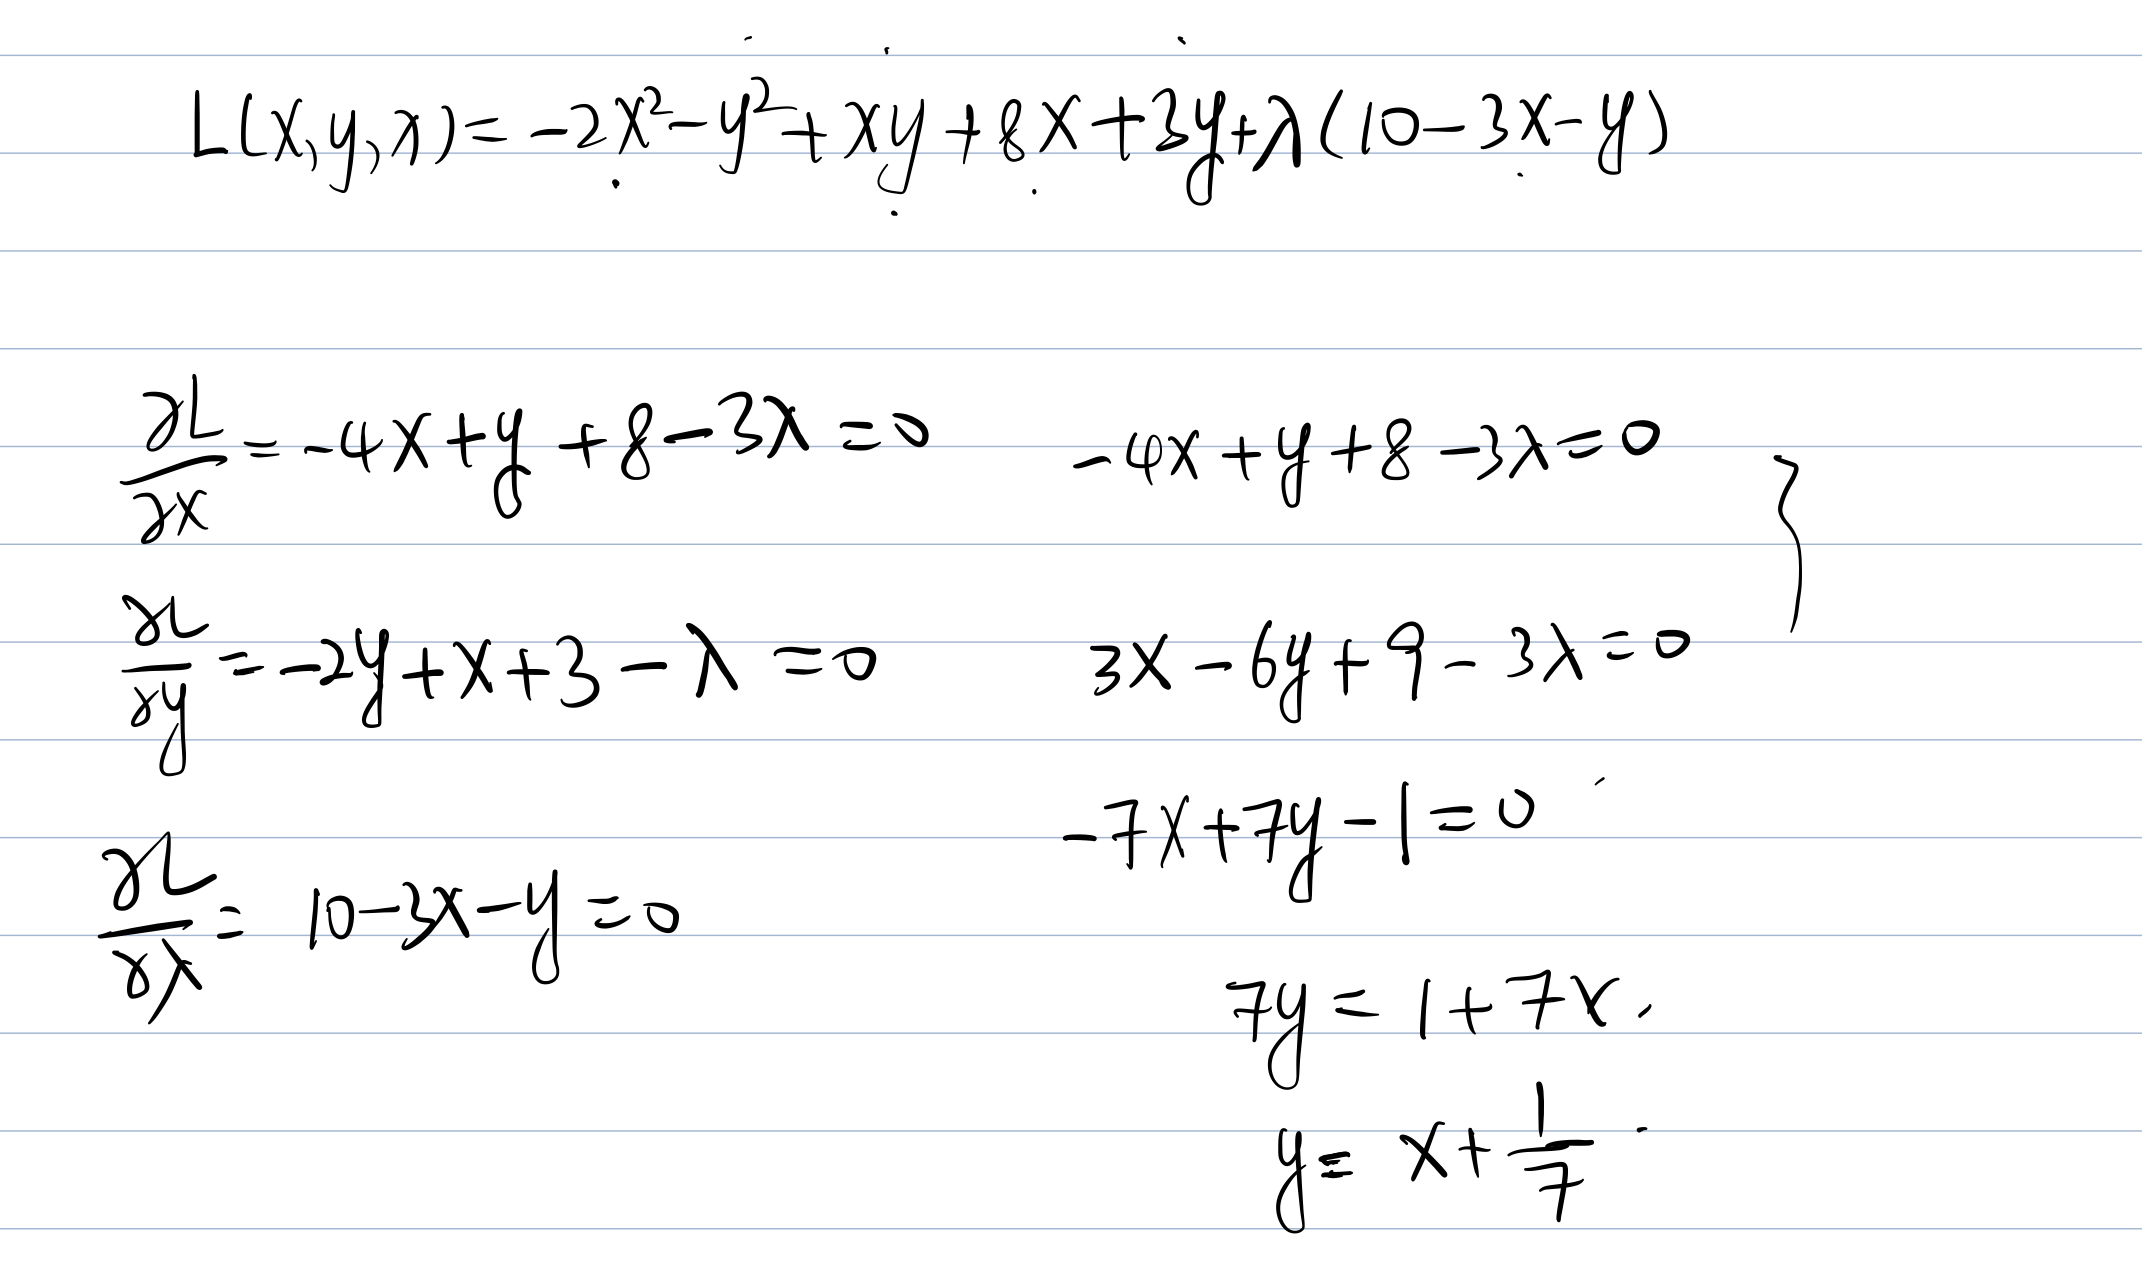 L(x,y,λ) = -2x² - y² + xy + 8x + 3y + λ(10 - 3x - y)
∂L/∂x = -4x + y + 8 - 3λ = 0
∂L/∂y = -2y + x + 3 - λ = 0
∂L/∂λ = 10 - 3x - y = 0
-4x + y + 8 - 3λ = 0
3x - 6y + 9 - 3λ = 0
-7x + 7y - 1 = 0
7y = 1 + 7x.
y = x + 1/7